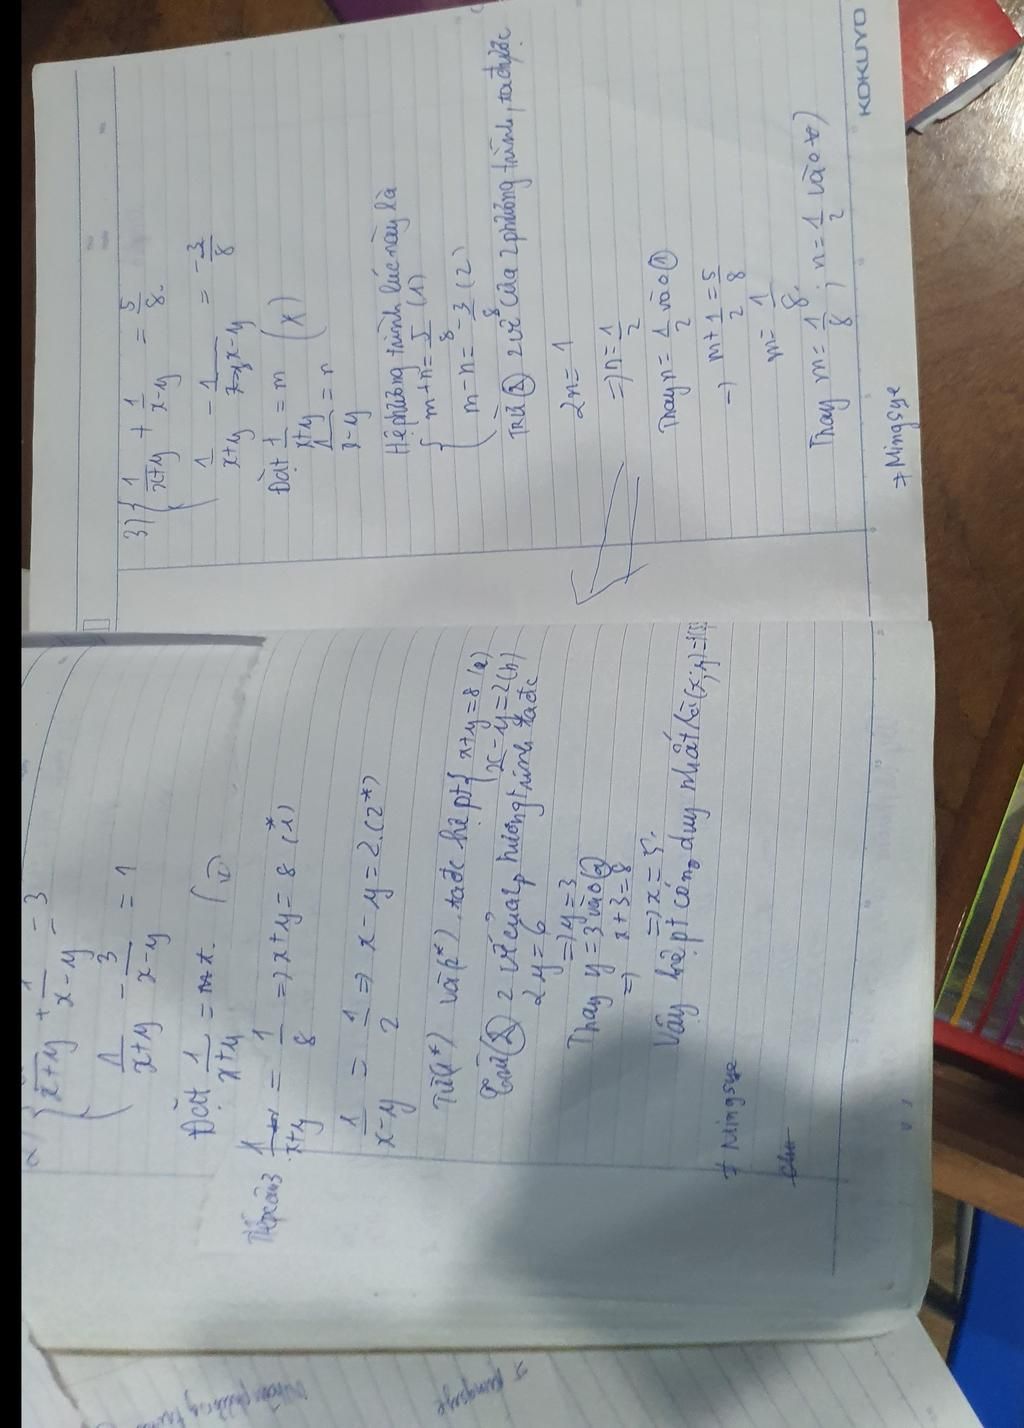 KOKUYO
3) { 1/x+y + 1/x-y = 5/8.
1/x+y - 1/x-y = -3/8
Đặt 1/x+y = m (*)
1/x-y = n
Hệ phương trình lúc này là
{ m+n = 5/8 (1)
m-n = -3/8 (2)
Trừ (2) 2 vế của 2 phương trình, ta được
2n = 1
=> n = 1/2
Thay n = 1/2 vào (1)
=> m + 1/2 = 5/8
m = 1/8.
Thay m = 1/8; n = 1/2 vào *)
≠ Mingsye
{ x+y + 1/x-y = 3
1/x+y - 3/x-y = 1
Đặt 1/x+y = m
Tiếp câu 3 1/x+y = 1/8 => x+y = 8 (1*)
1/x-y = 1/2 => x-y = 2. (2*)
Từ (1*) và (2*), ta đc hệ pt { x+y = 8 (a)
x-y = 2 (b)
Trừ (2) 2 vế của 2 phương trình, ta đc
2y = 6
=> y = 3
Thay y = 3 vào (a)
=> x+3 = 8
=> x = 5.
Vậy hệ pt có no duy nhất là (x;y) =
≠ Mingsye